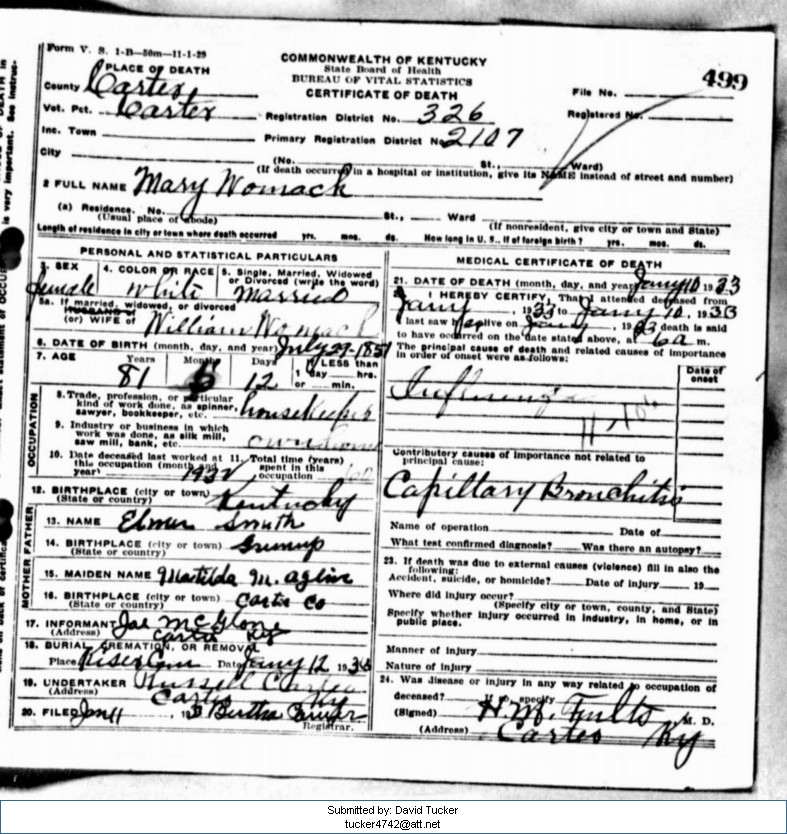 Form V. S. 1-B—50m—11-1-29
COMMONWEALTH OF KENTUCKY
State Board of Health
BUREAU OF VITAL STATISTICS
CERTIFICATE OF DEATH
499
PLACE OF DEATH
County Carter
File No.
Vot. Pct. Carter
Registration District No. 326
Registered No.
Inc. Town
Primary Registration District No. 2107
City
(No. St., Ward)
(If death occurred in a hospital or institution, give its NAME instead of street and number)
2 FULL NAME Mary Womack
(a) Residence. No. St., Ward
(Usual place of abode) (If nonresident, give city or town and State)
Length of residence in city or town where death occurred yrs. mos. ds. How long in U. S., if of foreign birth? yrs. mos. ds.
PERSONAL AND STATISTICAL PARTICULARS
3. SEX 4. COLOR OR RACE 5. Single, Married, Widowed
or Divorced (write the word)
female white married
5a. If married, widowed, or divorced
HUSBAND of
(or) WIFE of William Womack
6. DATE OF BIRTH (month, day, and year) July 29-1851
7. AGE Years Months Days If LESS than
1 day hrs.
81 5 12 or min.
OCCUPATION
8. Trade, profession, or particular
kind of work done, as spinner,
sawyer, bookkeeper, etc. housekeeper
9. Industry or business in which
work was done, as silk mill,
saw mill, bank, etc. own home
10. Date deceased last worked at 11. Total time (years)
this occupation (month and spent in this
year) 1932 occupation
12. BIRTHPLACE (city or town)
(State or country) Kentucky
MOTHER FATHER
13. NAME Elmer Smith
14. BIRTHPLACE (city or town) Greenup
(State or country)
15. MAIDEN NAME Matilda M.
16. BIRTHPLACE (city or town)
(State or country) Carter Co
17. INFORMANT Joe McGlone
(Address) Carter Ky
18. BURIAL, CREMATION, OR REMOVAL
Place Date Jany 12, 1933
19. UNDERTAKER Russell
(Address) Carter Ky
20. FILED Jan 11, 1933 Bertha
Registrar.
MEDICAL CERTIFICATE OF DEATH
21. DATE OF DEATH (month, day, and year) Jany 10 1933
I HEREBY CERTIFY, That I attended deceased from
Jany, 1933 to Jany 10, 1933
I last saw her alive on Jany, 1933 death is said
to have occurred on the date stated above, at 6 a m.
The principal cause of death and related causes of importance
in order of onset were as follows:
Date of
onset
Influenza
Contributory causes of importance not related to
principal cause:
Capillary Bronchitis
Name of operation Date of
What test confirmed diagnosis? Was there an autopsy?
23. If death was due to external causes (violence) fill in also the
following:
Accident, suicide, or homicide? Date of injury 19
Where did injury occur?
(Specify city or town, county, and State)
Specify whether injury occurred in industry, in home, or in
public place.
Manner of injury
Nature of injury
24. Was disease or injury in any way related to occupation of
deceased? If so, specify
(Signed) H. M. Fults M. D.
(Address) Carter Ky
Submitted by: David Tucker
tucker4742@att.net